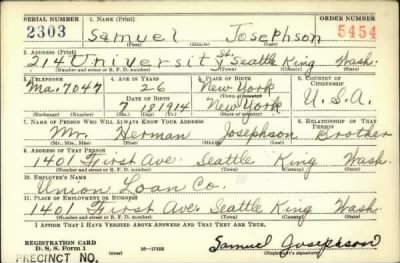 SERIAL NUMBER 1. NAME (Print) ORDER NUMBER
2303 Samuel Josephson 5454
(First) (Middle) (Last)
2. ADDRESS (Print)
214 University St. Seattle King Wash.
(Number and street or R. F. D. number) (Town) (County) (State)
3. TELEPHONE 4. AGE IN YEARS 5. PLACE OF BIRTH 6. COUNTRY OF CITIZENSHIP
Ma. 7047 26 New York
DATE OF BIRTH (Town or county) U.S.A.
7 18 1914 New York
(Exchange) (Number) (Mo.) (Day) (Yr.) (State or country)
7. NAME OF PERSON WHO WILL ALWAYS KNOW YOUR ADDRESS 8. RELATIONSHIP OF THAT PERSON
Mr. Herman Josephson Brother
(Mr., Mrs., Miss) (First) (Middle) (Last)
9. ADDRESS OF THAT PERSON
1401 First Ave. Seattle King Wash.
(Number and street or R. F. D. number) (Town) (County) (State)
10. EMPLOYER'S NAME
Union Loan Co.
11. PLACE OF EMPLOYMENT OR BUSINESS
1401 First Ave. Seattle King Wash.
(Number and street or R. F. D. number) (Town) (County) (State)
I AFFIRM THAT I HAVE VERIFIED ABOVE ANSWERS AND THAT THEY ARE TRUE.
REGISTRATION CARD
D. S. S. Form 1 (over) 16—17105 Samuel Josephson
PRECINCT NO. (Registrant's signature)